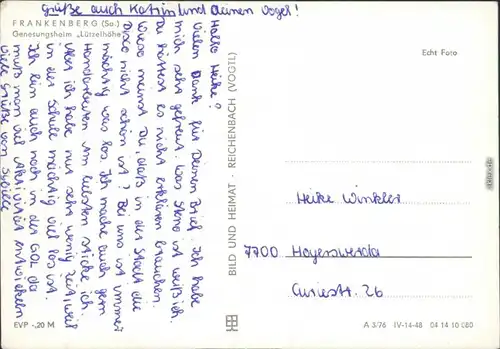 Grüße auch Katrin und Deinen Vogel!
FRANKENBERG (Sa.)
Genesungsheim „Lützelhöhe"
Hallo Heike!
Vielen Dank für Deinen Brief. Ich habe
mich sehr gefreut. Was Steno ist weiß ich.
Du hättest es nicht erklären brauchen.
Wieso meinst Du, daß in der Stadt die
Disco nicht schön ist? Bei uns ist immer
mächtig was los. Ich mache auch gern
Handarbeiten. Am liebsten sticke ich.
Aber ich habe nur sehr wenig Zeit, weil
in der Schule mächtig viel los ist.
Ich bin auch noch in der GOL da
muß man viel Aktivität entwickeln
Viele Grüße von Sybille
EVP -,20 M
BILD UND HEIMAT · REICHENBACH (VOGTL)
Echt Foto
Heike Winkler
7700 Hoyerswerda
Curiestr. 26
A 3/76 IV-14-48 04 14 10 080